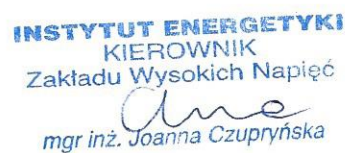 INSTYTUT ENERGETYKI
KIEROWNIK
Zakładu Wysokich Napięć
mgr inż. Joanna Czupryńska